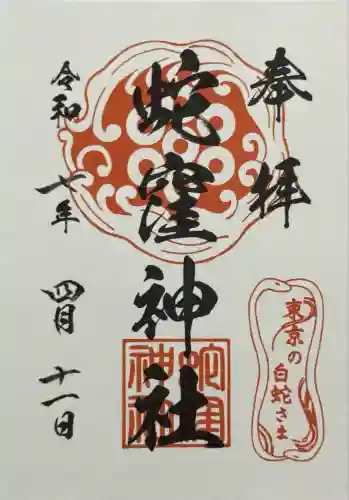 奉拝
東京の白蛇さま
蛇窪神社
蛇窪
神社
令和七年
四月十一日